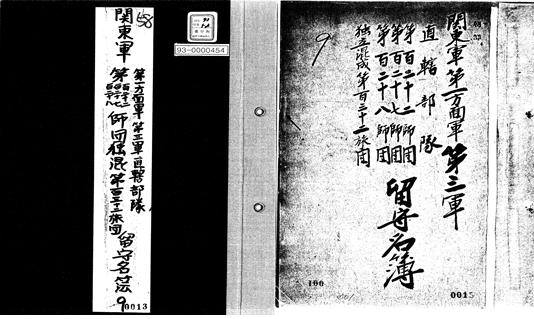 関東軍第一方面軍第三軍
直轄部隊
第百二十二師団
第百二十七師団
第百二十八師団
独立混成第百三十二旅団
留守名簿
9
100
0015
58
関東軍
第一方面軍第三軍直轄部隊
第百二十二
百二十七
百二十八
師団独混第百三十二旅団留守名簿
9
0013
93-0000454